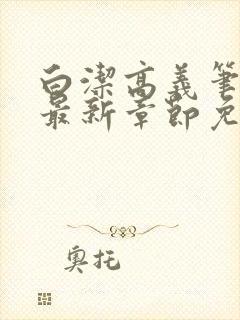 白潔高義筆
最新章節免
奧托